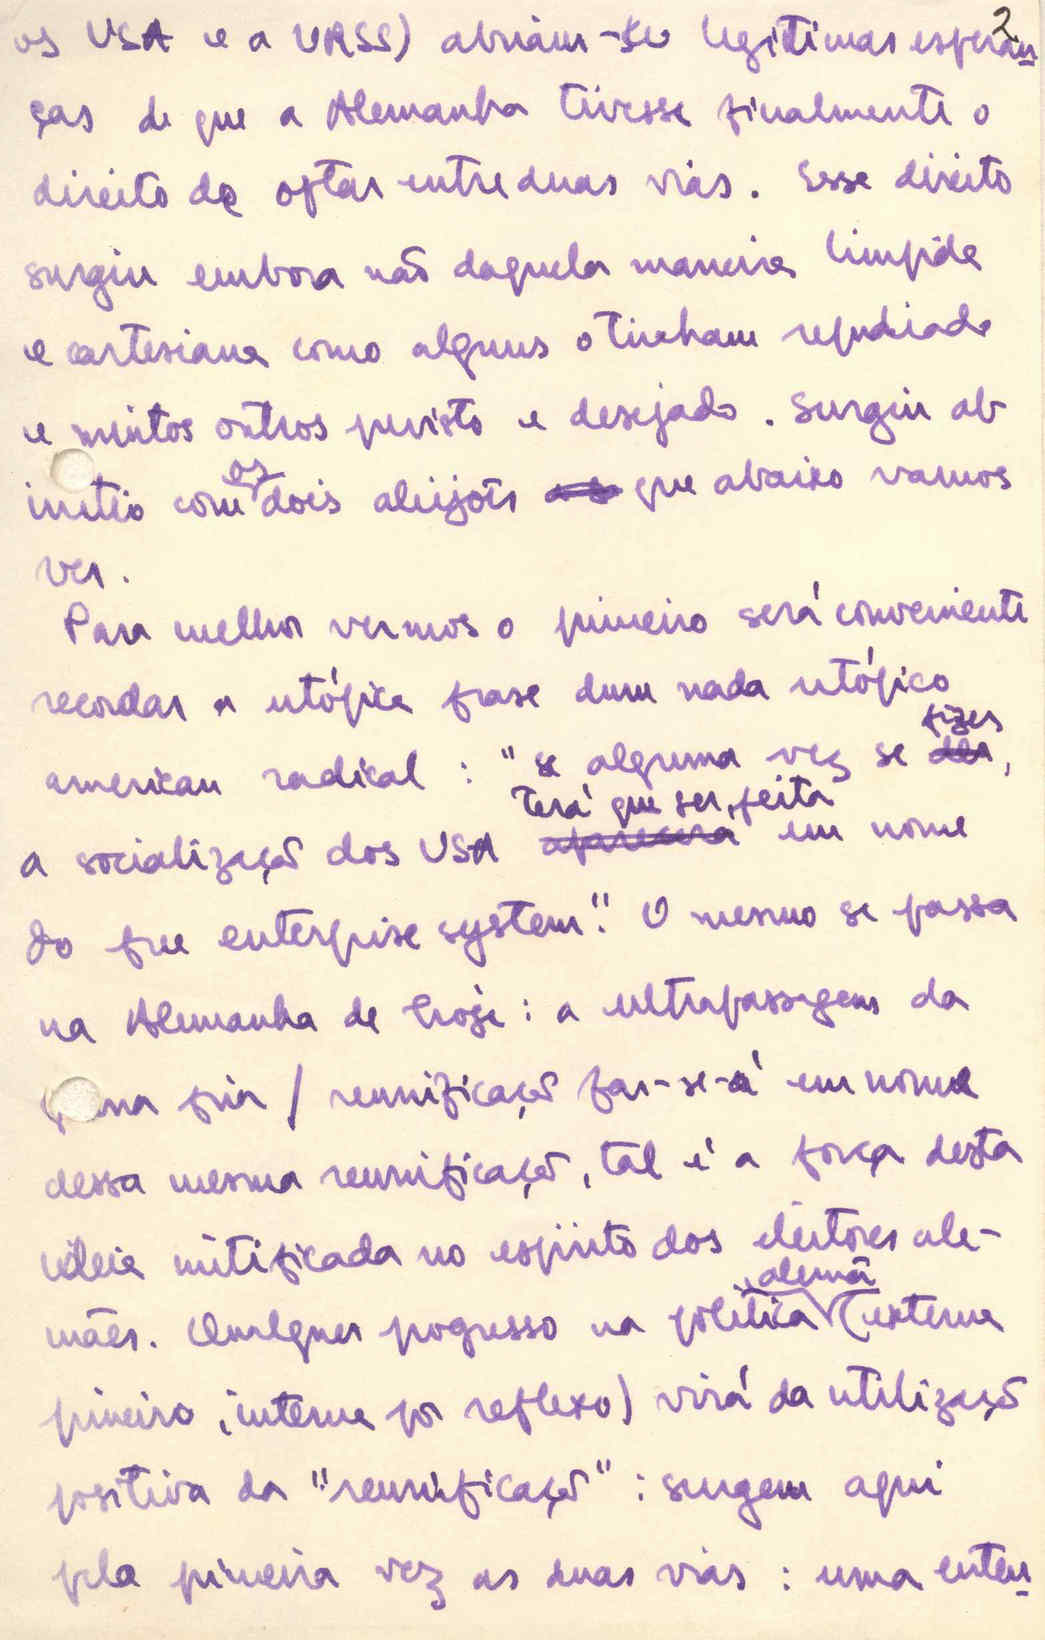 2
os USA e a URSS) abriam-se legítimas esperan
ças de que a Alemanha tivesse finalmente o
direito de optar entre duas vias. Esse direito
surgiu embora não daquela maneira límpida
e cartesiana como alguns o tinham repudiado
e muitos outros previsto e desejado. Surgiu ab
initio com os dois aleijões que abaixo vamos
ver.
Para melhor vermos o primeiro será conveniente
recordar a utópica frase dum nada utópico
american radical : "se alguma vez se fizer,
a socialização dos USA terá que ser feita em nome
do free enterprise system". O mesmo se passa
na Alemanha de hoje : a ultrapassagem da
guerra fria / reunificação far-se-á em nome
dessa mesma reunificação, tal é a força desta
ideia mitificada no espírito dos eleitores ale-
mães. Qualquer progresso na política alemã (externa
primeiro, interna por reflexo) virá da utilização
positiva da "reunificação" : surgem aqui
pela primeira vez as duas vias : uma enten